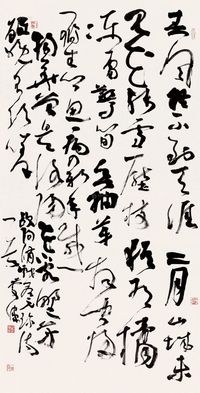 春风疑不到天涯二月山城未
见花残雪压枝犹有橘
冻雷惊笋欲抽芽夜闻归
雁生乡思病入新年感
物华曾是洛阳花下客野芳
虽晚不须嗟
欧阳修戏答元珍诗